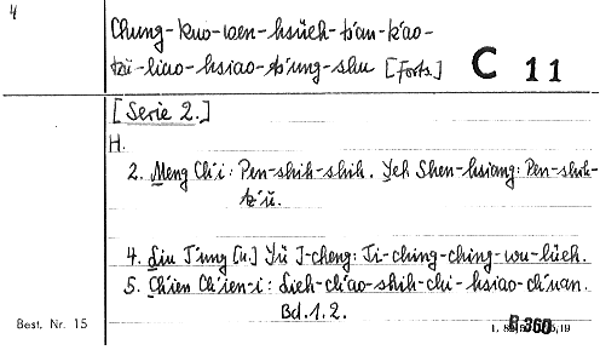 4
Chung-kuo-wen-hsüeh-ts'an-k'ao-
tzŭ-liao-hsiao-ts'ung-shu [Forts.] C 11
[Serie 2.]
H.
2. Meng Ch'i: Pen-shih-shih. Yeh Shen-hsiang: Pen-shih-
tz'ŭ.
4. Liu T'ung [u.] Yü I-cheng: Ti-ching-ching-wu-lüeh.
5. Ch'ien Ch'ien-i: Lieh-ch'ao-shih-chi-hsiao-ch'uan.
Bd. 1. 2.
Best. Nr. 15 R 360